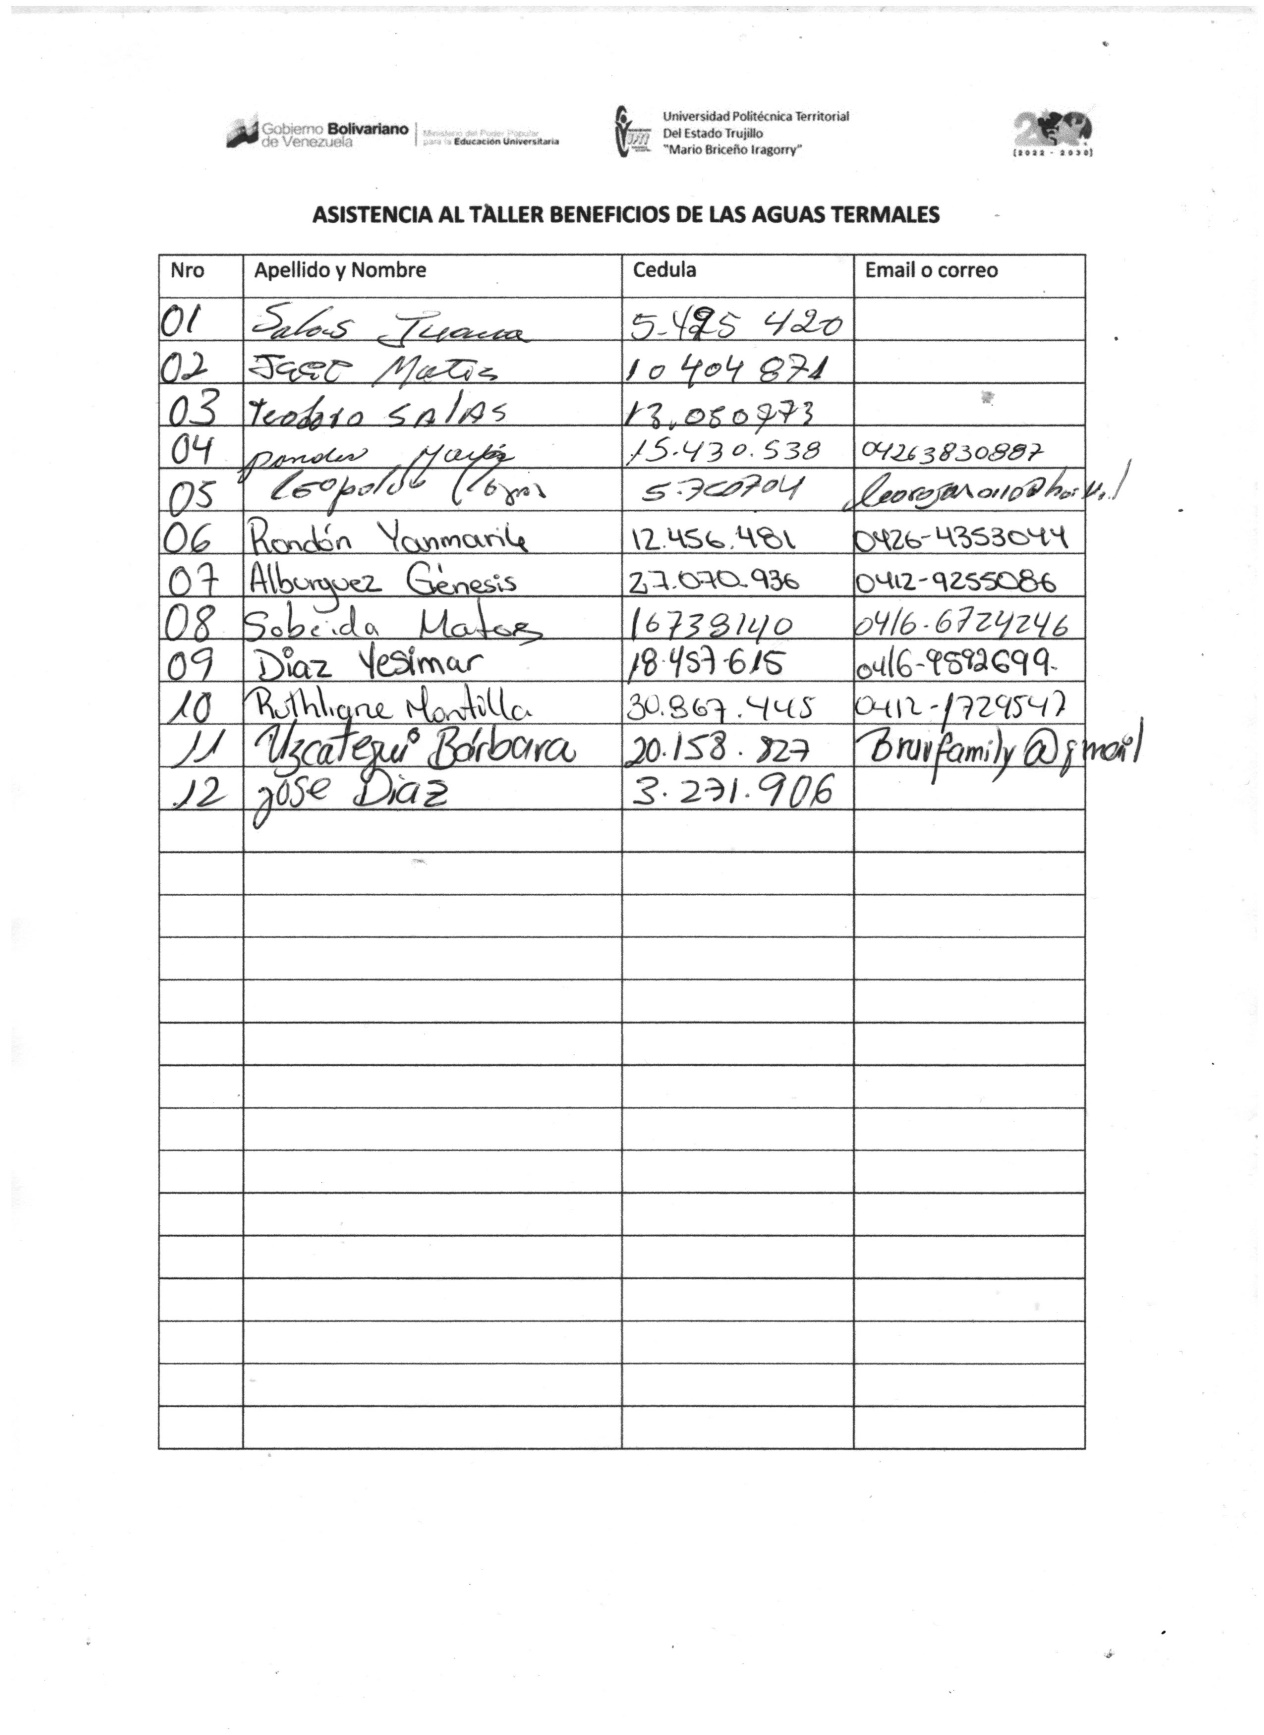 Gobierno Bolivariano de Venezuela
Ministerio del Poder Popular para la Educación Universitaria
Universidad Politécnica Territorial
Del Estado Trujillo
"Mario Briceño Iragorry"
200
(2022 - 2030)
ASISTENCIA AL TALLER BENEFICIOS DE LAS AGUAS TERMALES
Nro Apellido y Nombre Cedula Email o correo
01 Salas Juana 420
02 10 404 871
03 Teodoro SALAS 13.050973
04 15.430.538 04263830887
05 Leopoldo
06 Rondón Yanmarile 12.456.481 0426-4353044
07 Alburguez Génesis 27.070.936 0412-9255086
08 Sobeida Matos 16738140 0416-6724246
09 Diaz Yesimar 18.457.615 0416-9592699.
10 Ruthliane Montilla 30.867.445 0412-1729547
11 Uzcategui Bárbara 20.158.827 Brunfamily@gmail
12 jose Diaz 3.271.906